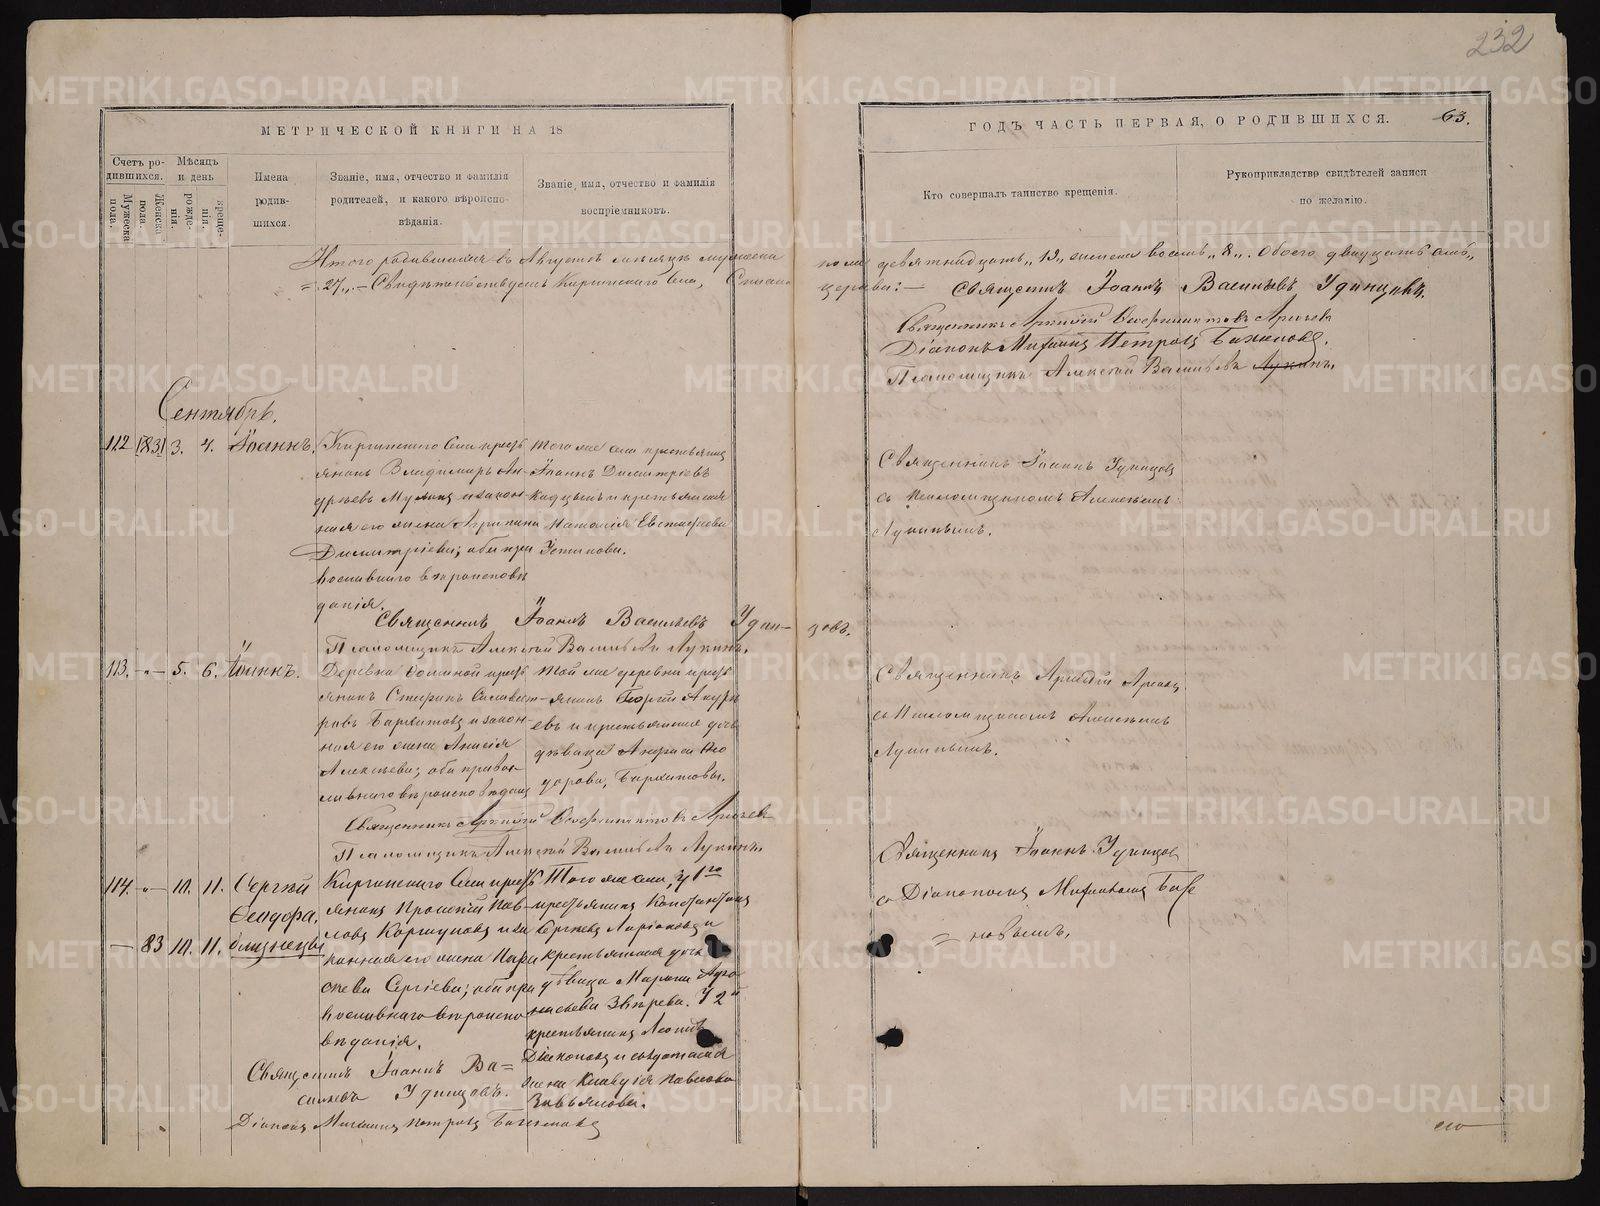 232
МЕТРИЧЕСКОЙ КНИГИ НА 18
ГОДЪ ЧАСТЬ ПЕРВАЯ, О РОДИВШИХСЯ.
63.
Счетъ ро-
дившихся.
Мужеска
пола.
Женска
пола.
Мѣсяцъ
и день
рожде-
нія.
креще-
нія.
Имена
родив-
шихся.
Званіе, имя, отчество и фамилія
родителей, и какого вѣроиспо-
вѣданія.
Званіе, имя, отчество и фамилія
воспріемниковъ.
Кто совершалъ таинство крещенія.
Рукоприкладство свидѣтелей записи
по желанію.
Итого родившихся въ Августѣ мѣсяцѣ мужеска
пола девятнадцать „19„ женска восемь „8„. Обоего двадцать семь„
= 27„.— Свидѣтельствуемъ Киргинскаго села, Спасской
церкви:— Священникъ Іоаннъ Васильевъ Удинцовъ.
Священникъ Аркадій
Діаконъ Михаилъ Петровъ Баженовъ.
Псаломщикъ Алексѣй Васильевъ Лукинъ.
Сентябрь.
112 |83| 3. 4. Іоаннъ.
Киргинскаго села кресть
янинъ Владимиръ Ан-
дреевъ и закон-
ная его жена Агрипина
Димитріева; оба пра
вославнаго вѣроисповѣ
данія.
того же села крестьянинъ
Іоаннъ Димитріевъ
и крестьянская
Наталія Евстафіева
Устинова.
Священникъ Іоаннъ Удинцовъ
съ псаломщикомъ Алексѣемъ
Лукинымъ.
Священникъ Іоаннъ Васильевъ Удин—цовъ.
Псаломщикъ Алексѣй Васильевъ Лукинъ.
113. -„- 5. 6. Іоаннъ.
Деревни крестъ
янинъ Стефанъ Силивест-
ровъ Бархатовъ и закон-
ная его жена Анисія
Алексѣева; оба право
славнаго вѣроисповѣданія
той же деревни кресть
янинъ Георгій
евъ и крестьянская дочь
дѣвица Ѳео
дорова, Бархатовы.
Священникъ Аркадій
съ Псаломщикомъ Алексѣемъ
Лукинымъ.
Священникъ Аркадій
Псаломщикъ Алексѣй Васильевъ Лукинъ.
114. -„- 10. 11. Сергѣй
Ѳеодора,
— 83 10. 11. близнецы
Киргинскаго села кресть
янинъ Прокопій Пав-
ловъ Коршуновъ и за
конная его жена Пара
скева Сергіева; оба пра
вославнаго вѣроиспо
вѣданія.
Того же села, у 1го
крестьянинъ Константинъ
Сергіевъ Ларіоновъ и
крестьянская дочь
дѣвица Марѳа
Звѣрева. У 2й
крестьянинъ Леонтій
Діаконовъ и солдатская
жена Клавдія Павлова
Завьялова.
Священникъ Іоаннъ Удинцовъ
съ Діакономъ Михаиломъ Баже
= новымъ.
Священникъ Іоаннъ Ва=
сильевъ Удинцовъ.
Діаконъ Михаилъ Петровъ Баженовъ